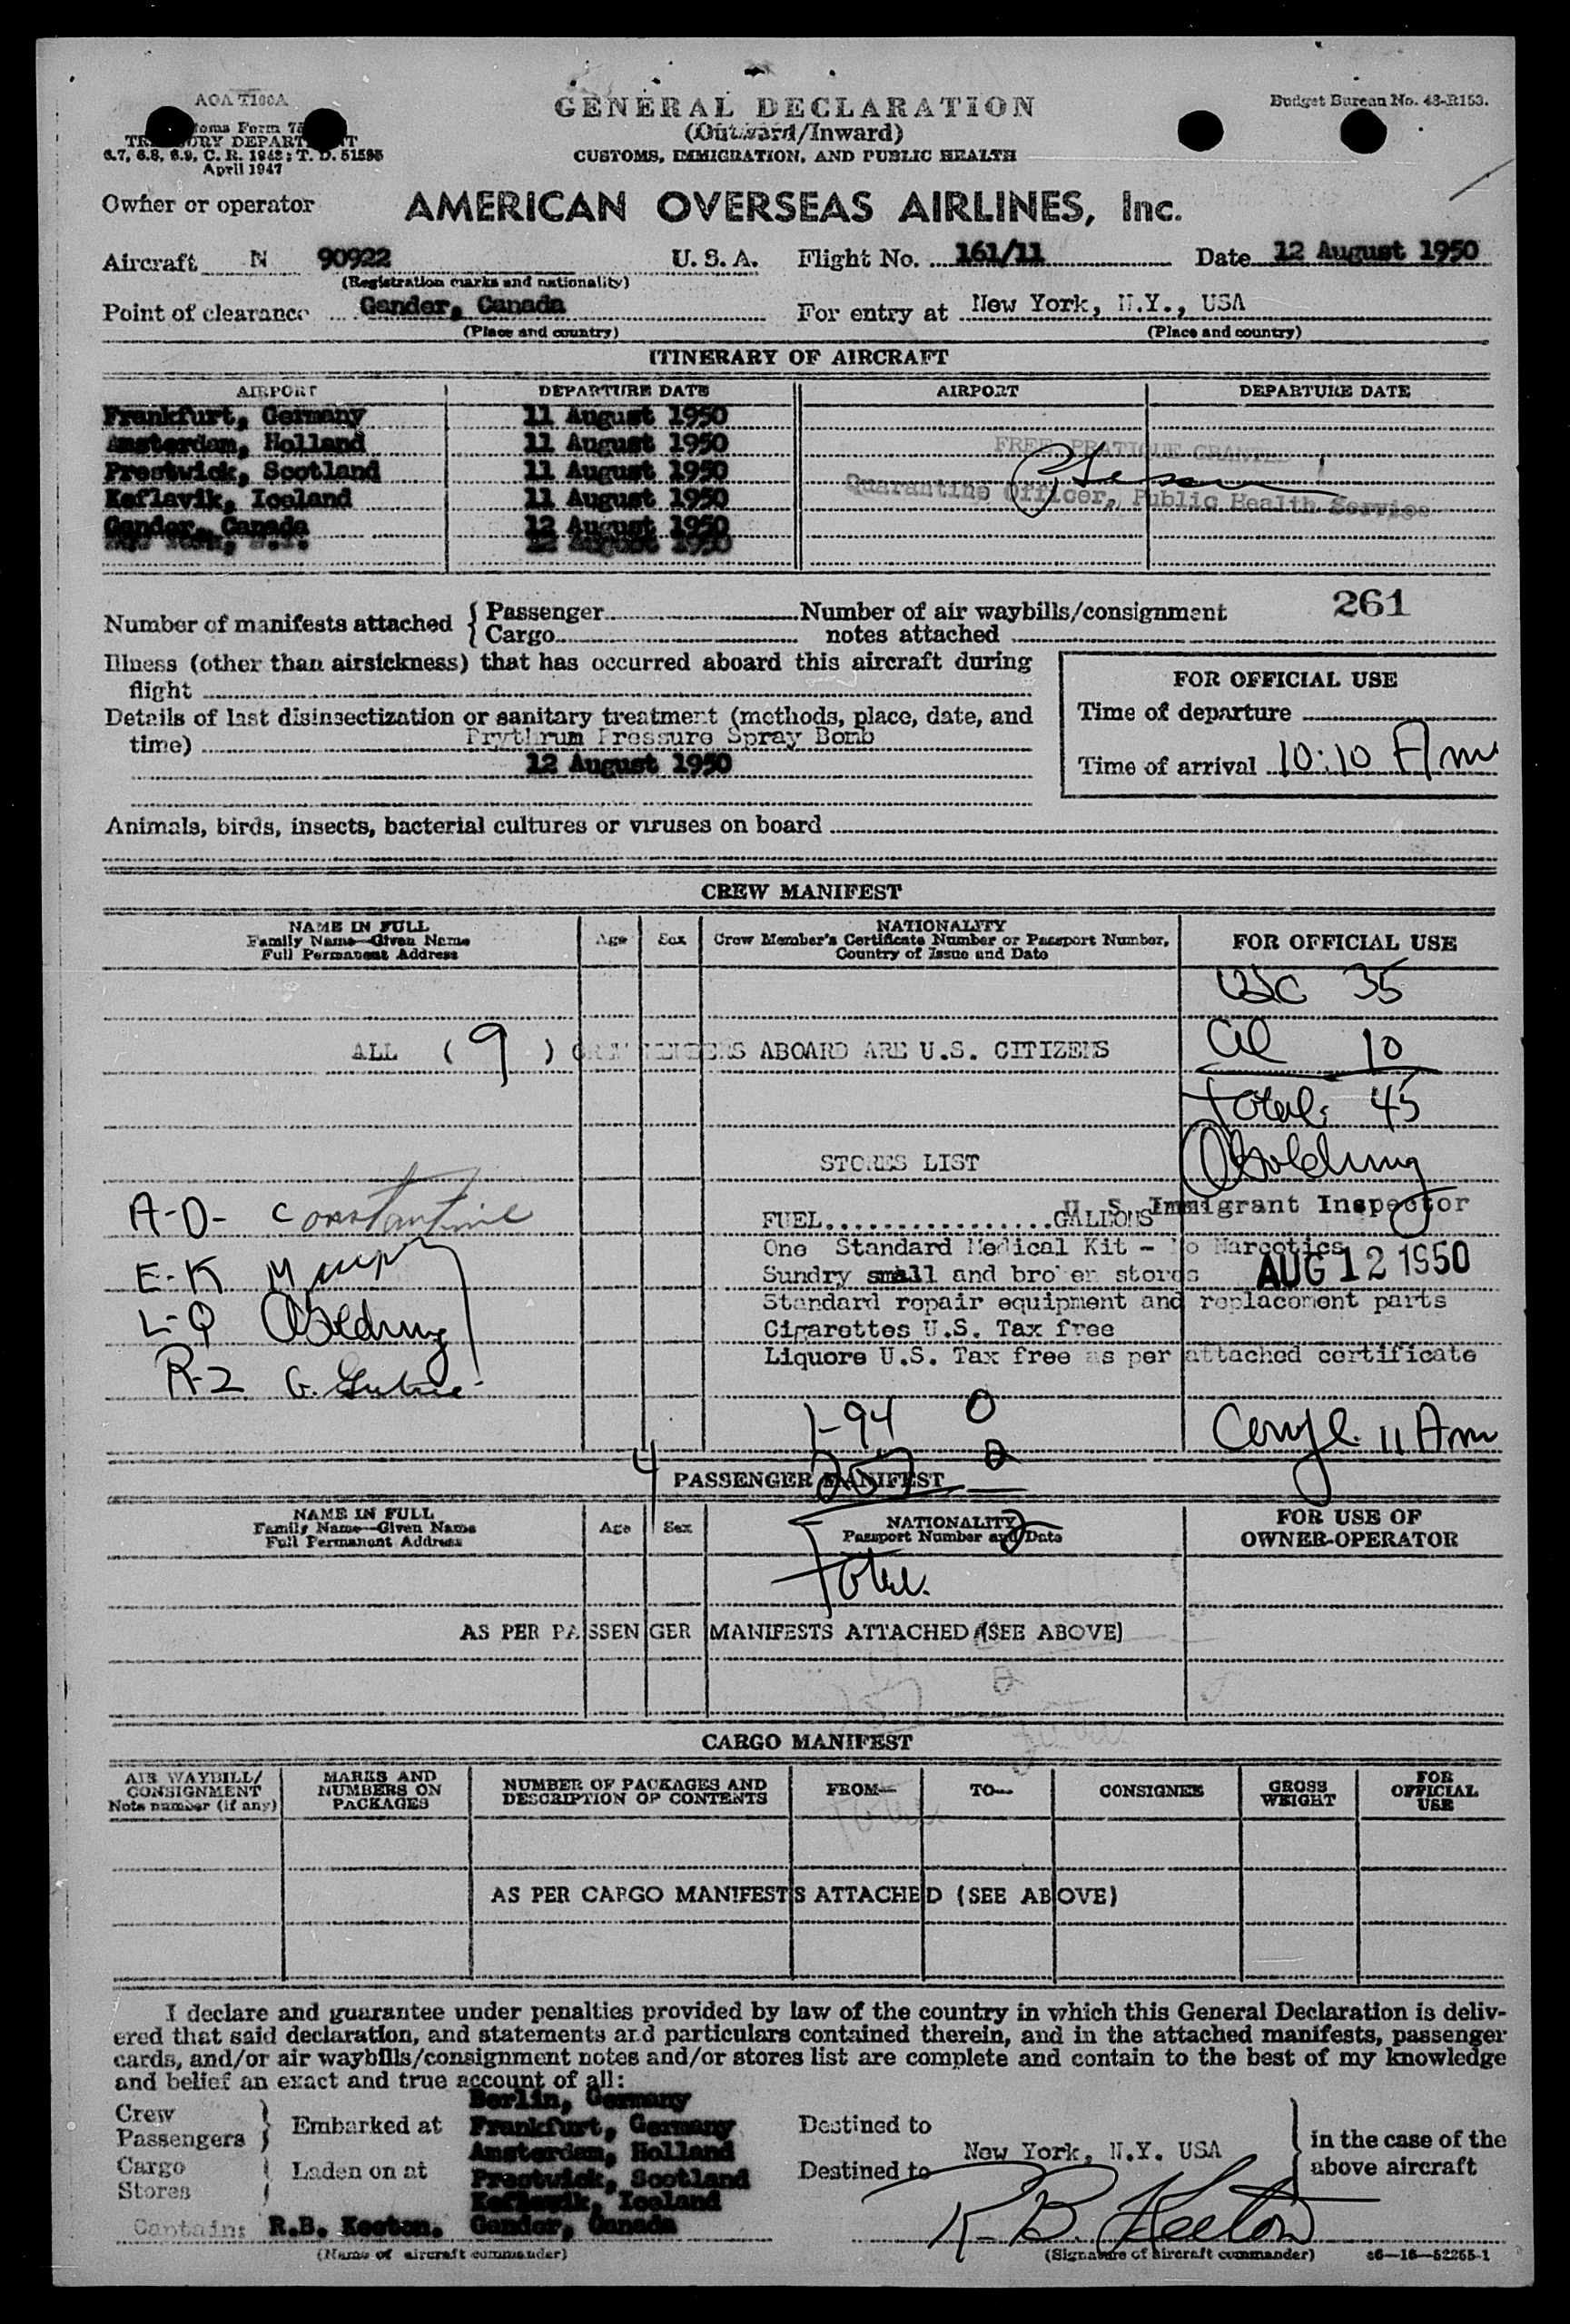 AOA T100A
Customs Form 75
TREASURY DEPARTMENT
6.7, 6.8, 6.9, C. R. 1943; T. D. 51595
April 1947
GENERAL DECLARATION
(Outward/Inward)
CUSTOMS, IMMIGRATION, AND PUBLIC HEALTH
Budget Bureau No. 43-R153.
Owner or operator AMERICAN OVERSEAS AIRLINES, Inc.
Aircraft N 90922 U. S. A. Flight No. 161/11 Date 12 August 1950
(Registration marks and nationality)
Point of clearance Gander, Canada For entry at New York, N.Y., USA
(Place and country) (Place and country)
ITINERARY OF AIRCRAFT
AIRPORT DEPARTURE DATE AIRPORT DEPARTURE DATE
Frankfurt, Germany 11 August 1950
Amsterdam, Holland 11 August 1950
FREE PRATIQUE GRANTED
Prestwick, Scotland 11 August 1950
Quarantine Officer, Public Health Service
Keflavik, Iceland 11 August 1950
Gander, Canada 12 August 1950
12 August 1950
Number of manifests attached { Passenger Number of air waybills/consignment 261
Cargo notes attached
Illness (other than airsickness) that has occurred aboard this aircraft during
flight
FOR OFFICIAL USE
Details of last disinsectization or sanitary treatment (methods, place, date, and
Time of departure
time) Prythrum Pressure Spray Bomb
12 August 1950
Time of arrival 10:10 Am
Animals, birds, insects, bacterial cultures or viruses on board
CREW MANIFEST
NAME IN FULL
Family Name—Given Name
Full Permanent Address
Age Sex
NATIONALITY
Crew Member's Certificate Number or Passport Number,
Country of Issue and Date
FOR OFFICIAL USE
USC 35
ALL ( 9 ) CREW MEMBERS ABOARD ARE U.S. CITIZENS
al 10
Total: 45
STORES LIST
Golding
U. S. Immigrant Inspector
A-D- Constantine
FUEL................GALLONS
One Standard Medical Kit - No Narcotics
AUG 12 1950
E-K
Sundry small and broken stores
Standard repair equipment and replacement parts
L-Q Golding
Cigarettes U.S. Tax free
Liquore U.S. Tax free as per attached certificate
R-Z G.
I-94 0
257 2
Compl. 11 Am
4
PASSENGER MANIFEST
NAME IN FULL
Family Name—Given Name
Full Permanent Address
Age Sex
NATIONALITY
Passport Number and Date
FOR USE OF
OWNER-OPERATOR
2
Total
AS PER PASSENGER MANIFESTS ATTACHED (SEE ABOVE)
CARGO MANIFEST
AIR WAYBILL/
CONSIGNMENT
Note number (if any)
MARKS AND
NUMBERS ON
PACKAGES
NUMBER OF PACKAGES AND
DESCRIPTION OF CONTENTS
FROM— TO— CONSIGNEE
GROSS
WEIGHT
FOR
OFFICIAL
USE
AS PER CARGO MANIFESTS ATTACHED (SEE ABOVE)
I declare and guarantee under penalties provided by law of the country in which this General Declaration is deliv-
ered that said declaration, and statements and particulars contained therein, and in the attached manifests, passenger
cards, and/or air waybills/consignment notes and/or stores list are complete and contain to the best of my knowledge
and belief an exact and true account of all:
Berlin, Germany
Crew
Passengers } Embarked at Frankfurt, Germany Destined to
Amsterdam, Holland New York, N.Y. USA
in the case of the
above aircraft
Cargo
Stores } Laden on at Prestwick, Scotland Destined to
Keflavik, Iceland
Captain: R.B. Keeton. Gander, Canada R. B. Keeton
(Name of aircraft commander) (Signature of aircraft commander) c6—16—52255-1